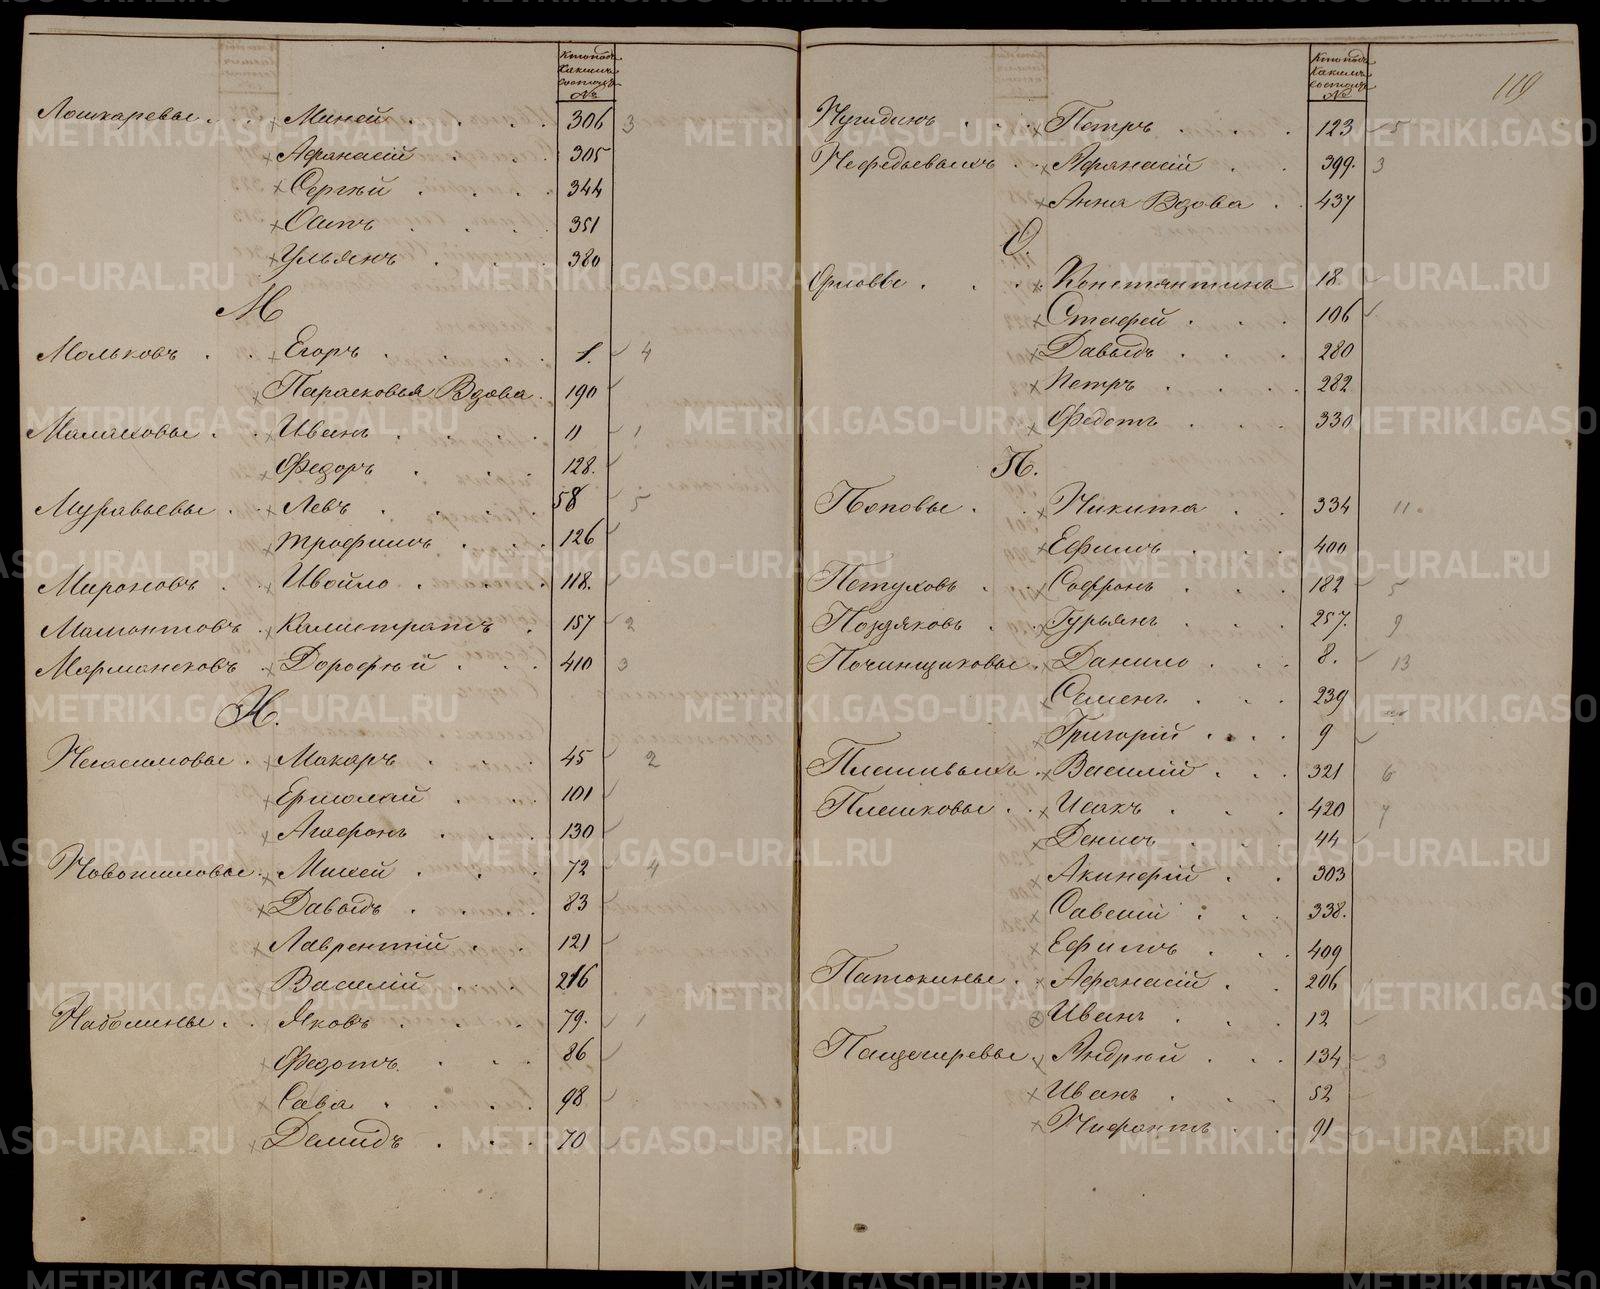 Кто подъ
какимъ
состоитъ
№
Лошкаревы Миней 306 3
Афанасій 305
Сергѣй 344
Осипъ 351
Ульянъ 380
М
Мальковъ Егоръ 1. 4
Парасковья Вдова 190
Малаховы Иванъ 11 1
Федоръ 128.
Муравьевы Левъ 58 5
Трофимъ 126
Мироновъ Ивойло 118.
Мамонтовъ Калистратъ 157 2
Дорофѣй 410 3
Н.
Негасимовы Макаръ 45 2
Ермолай 101
Агафонъ 130
Новожиловы Михей 72 4
Давыдъ 83
Лаврентій 121
Василій 216
Яковъ 79. 1
Федотъ 86
Сава 98
Демидъ 70
Кто подъ
какимъ
состоитъ
№
119
Петръ 123 5
Нефедьевыхъ Афанасій 399. 3
Анна Вдова 437
О.
Орловы Константинъ 18
Стафей 106
Давыдъ 280
Петръ 282
Федотъ 330
П.
Поповы Никита 334 11
Ефимъ 400
Петуховъ Софронъ 182 5
Поздяковъ Гурьянъ 257. 9
Починщиковы Данило 8. 13
Семенъ 239
Григорій 9
Плешивыхъ Василій 321 6
Плешковы Исакъ 420 7
Денисъ 44
Акинфій 303
Савелій 338.
Ефимъ 409
Патокины Афанасій 206
Иванъ 12
Пащенревы Андрѣй 134 3
Иванъ 52
Нифантъ 91
METRIKI.GASO-URAL.RU